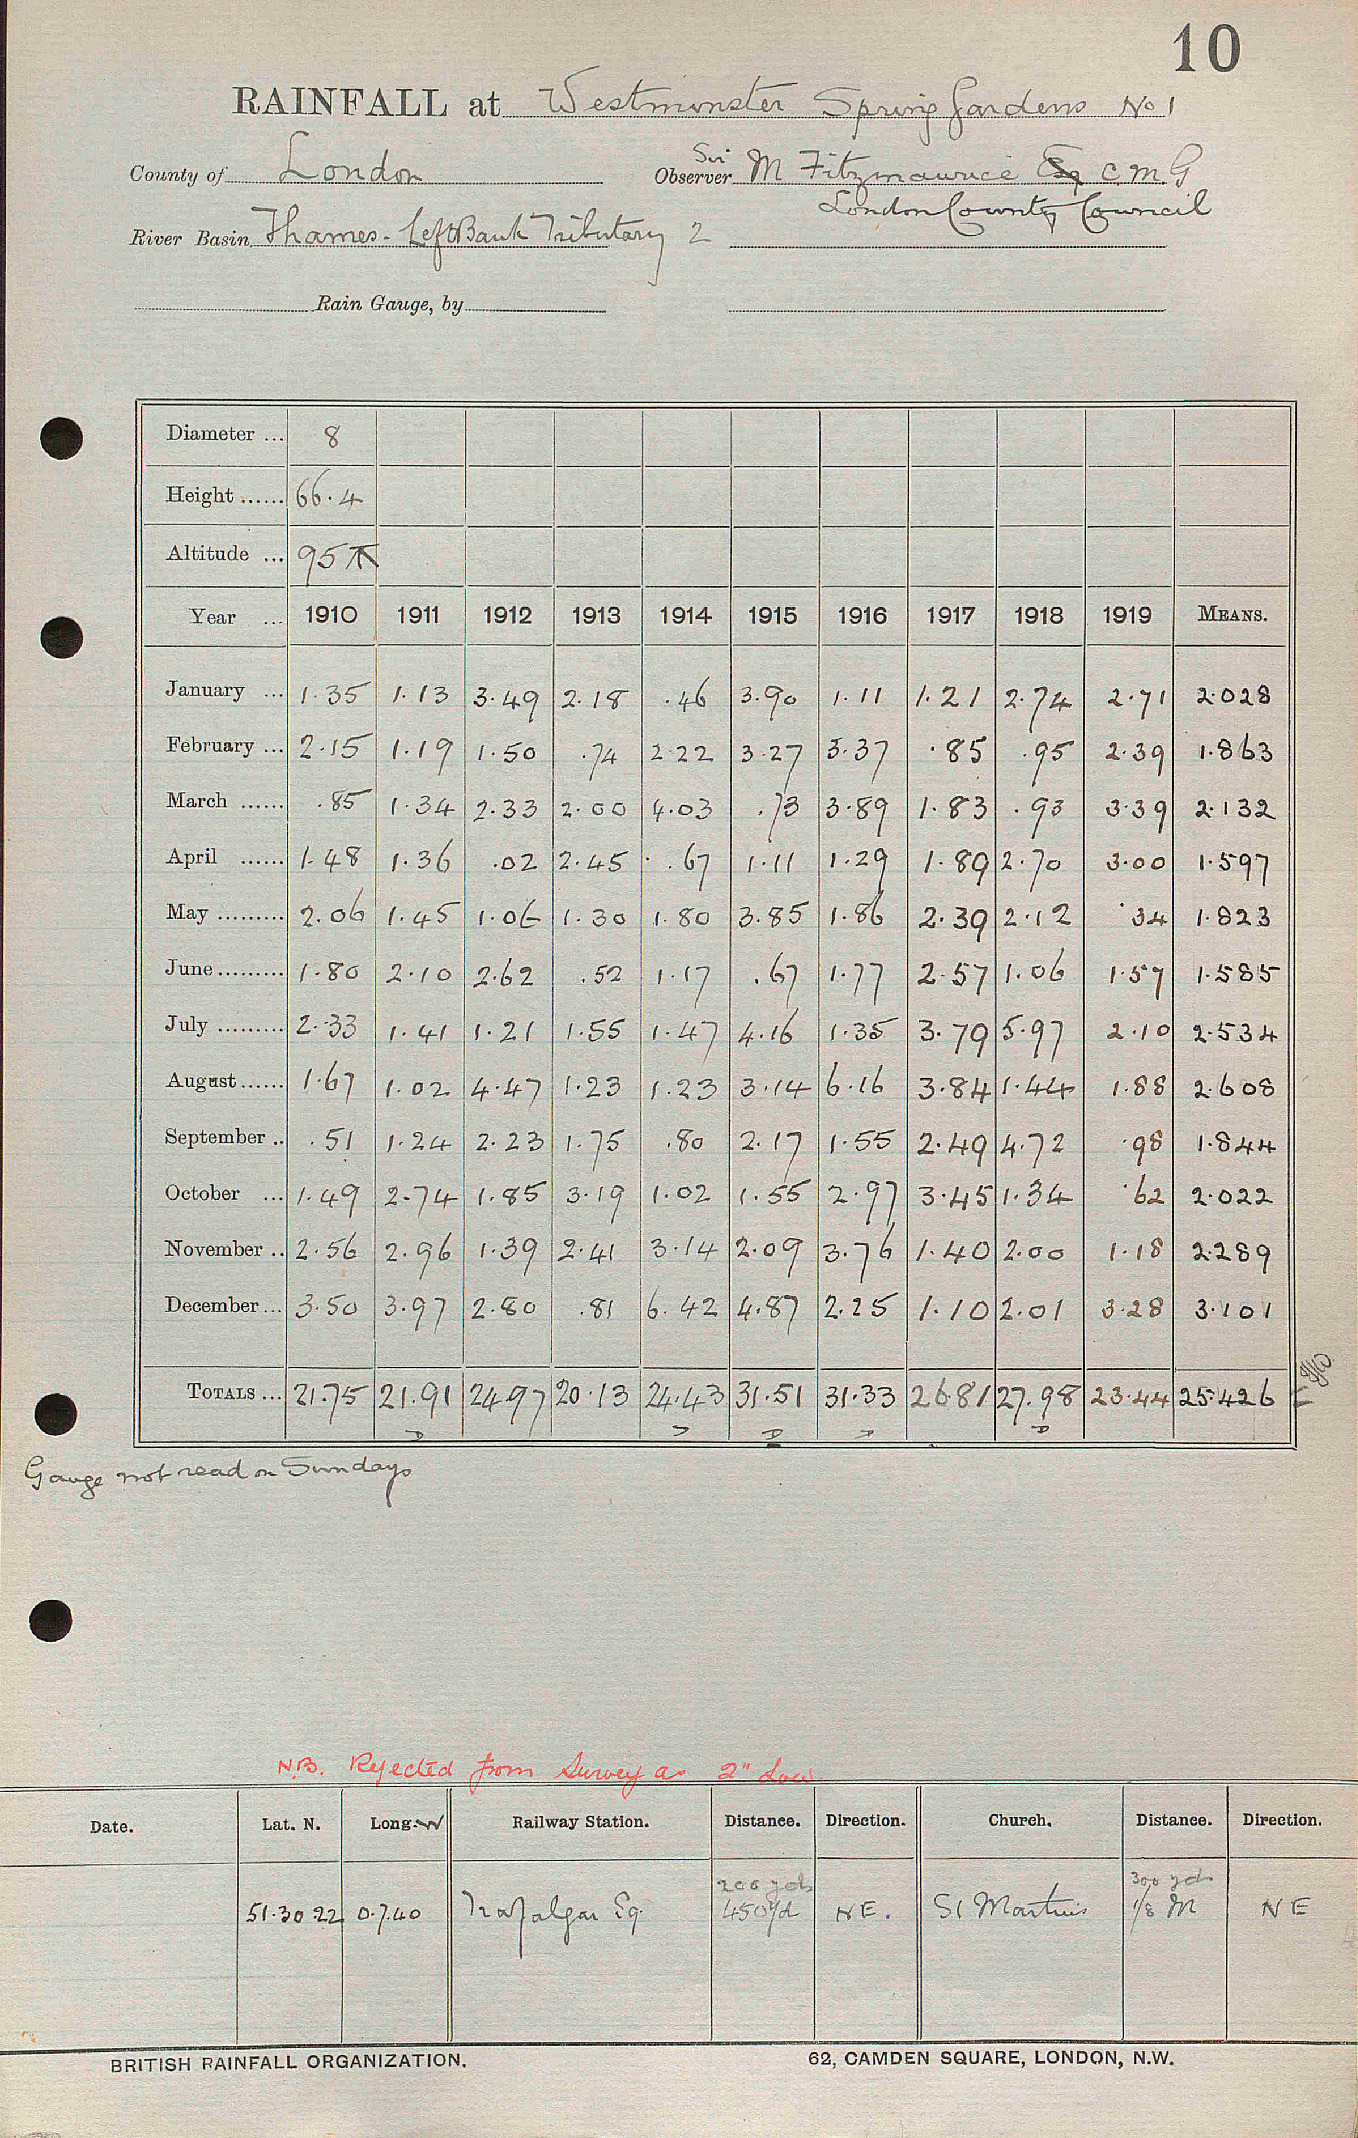 10
RAINFALL at Westminster Spring Gardens No 1
County of London Observer Sir M Fitzmaurice Esq C M G
London County Council
River Basin Thames - Left Bank Tributary 2
Rain Gauge, by
Diameter ... 8
Height ...... 66.4
Altitude ... 95
Year ... 1910 1911 1912 1913 1914 1915 1916 1917 1918 1919 MEANS.
January ... 1.35 1.13 3.49 2.18 .46 3.90 1.11 1.21 2.74 2.71 2.028
February ... 2.15 1.19 1.50 .74 2.22 3.27 3.37 .85 .95 2.39 1.863
March ...... .85 1.34 2.33 2.00 4.03 .73 3.89 1.83 .93 3.39 2.132
April ...... 1.48 1.36 .02 2.45 .67 1.11 1.29 1.89 2.70 3.00 1.597
May ......... 2.06 1.45 1.06 1.30 1.80 3.85 1.86 2.39 2.12 .34 1.823
June ......... 1.80 2.10 2.62 .52 1.17 .67 1.77 2.57 1.06 1.57 1.585
July ......... 2.33 1.41 1.21 1.55 1.47 4.16 1.35 3.79 5.97 2.10 2.534
August ...... 1.67 1.02 4.47 1.23 1.23 3.14 6.16 3.84 1.44 1.88 2.608
September .. .51 1.24 2.23 1.75 .80 2.17 1.55 2.49 4.72 .98 1.844
October ... 1.49 2.74 1.85 3.19 1.02 1.55 2.97 3.45 1.34 .62 2.022
November .. 2.56 2.96 1.39 2.41 3.14 2.09 3.76 1.40 2.00 1.18 2.289
December ... 3.50 3.97 2.80 .81 6.42 4.87 2.25 1.10 2.01 3.28 3.101
TOTALS ... 21.75 21.91 24.97 20.13 24.43 31.51 31.33 26.81 27.98 23.44 25.426
Gauge not read on Sundays
N.B. Rejected from Survey as 2" Low
Date. Lat. N. Long. W Railway Station. Distance. Direction. Church. Distance. Direction.
200 yds 300 yds
51.30 22 0.7.40 Trafalgar Sq. 450 yd NE. St Martins 1/8 M NE
BRITISH RAINFALL ORGANIZATION. 62, CAMDEN SQUARE, LONDON, N.W.